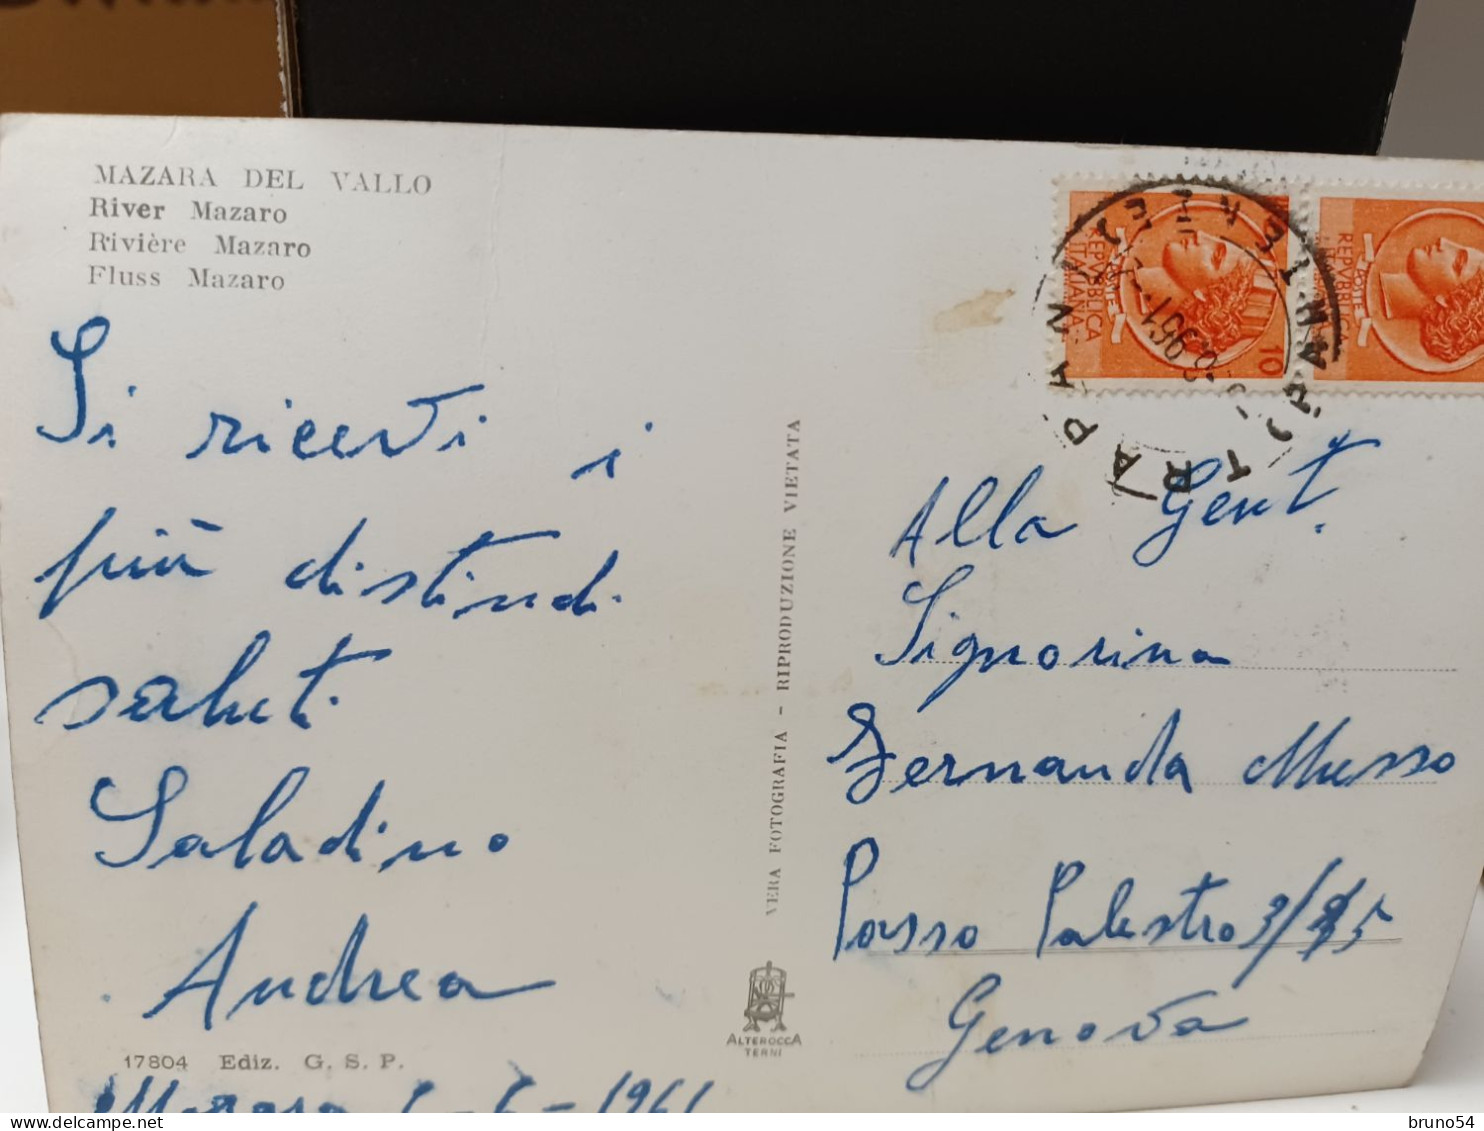 MAZARA DEL VALLO
River Mazaro
Rivière Mazaro
Fluss Mazaro
Si ricevi i
più distinti
saluti
Saladino
Andrea
17804 Ediz. G. S. P.
VERA FOTOGRAFIA - RIPRODUZIONE VIETATA
ALTEROCCA
TERNI
REPVBBLICA
ITALIANA
10
REPVBBLICA
TRAPANI
Alla Gent.
Signorina
Fernanda Musso
Passo Palestro 3/
Genova
1961
bruno54